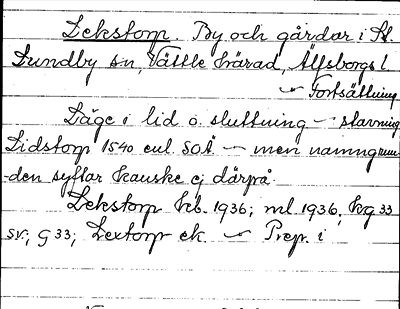 Lekstorp. By och gårdar i St.
Lundby sn, Vättle härad, Älfsborgs l.
Fortsättning
Läge i lid o. sluttning – stavning
Lidstorp 1540 enl SOÄ – men namngrun-
den syftar kanske ej därpå.
Lekstorp kb. 1936; ml. 1936, hg 33
sv., G 33; Lextorp ek. – Prep. i